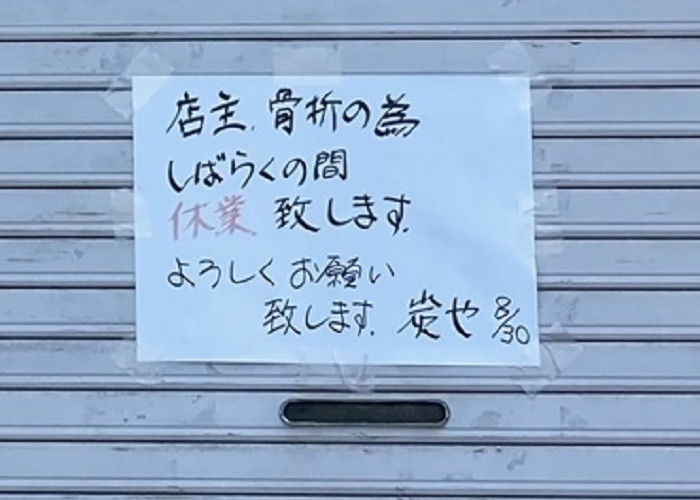 店主、骨折の為
しばらくの間
休業 致します。
よろしくお願い
致します。 炭や 8/30